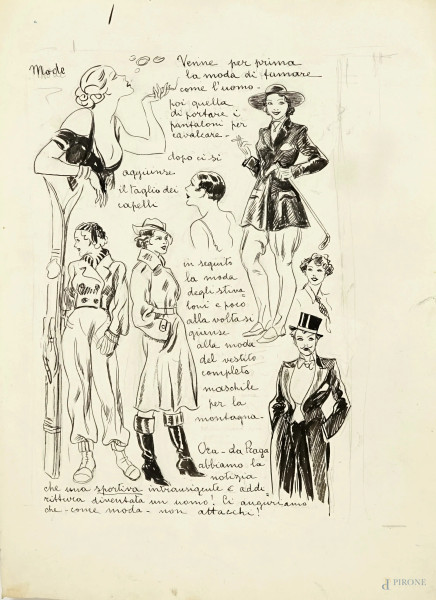 Mode
Venne per prima
la moda di fumare
come l'uomo -
poi quella
di portare i
pantaloni per
cavalcare -
dopo ci si
aggiunse
il taglio dei
capelli
in seguito
la moda
degli stiva
loni e poco
alla volta si
giunse
alla moda
del vestito
completo
maschile
per la
montagna -
Ora - da Praga
abbiamo la
notizia
che una sportiva intransigente è addi
rittura diventata un uomo! Ci auguriamo
che - come moda - non attacchi!
PIRONE